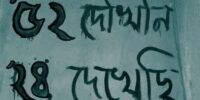 ৫২ দেখিনি
২৪ দেখেছি